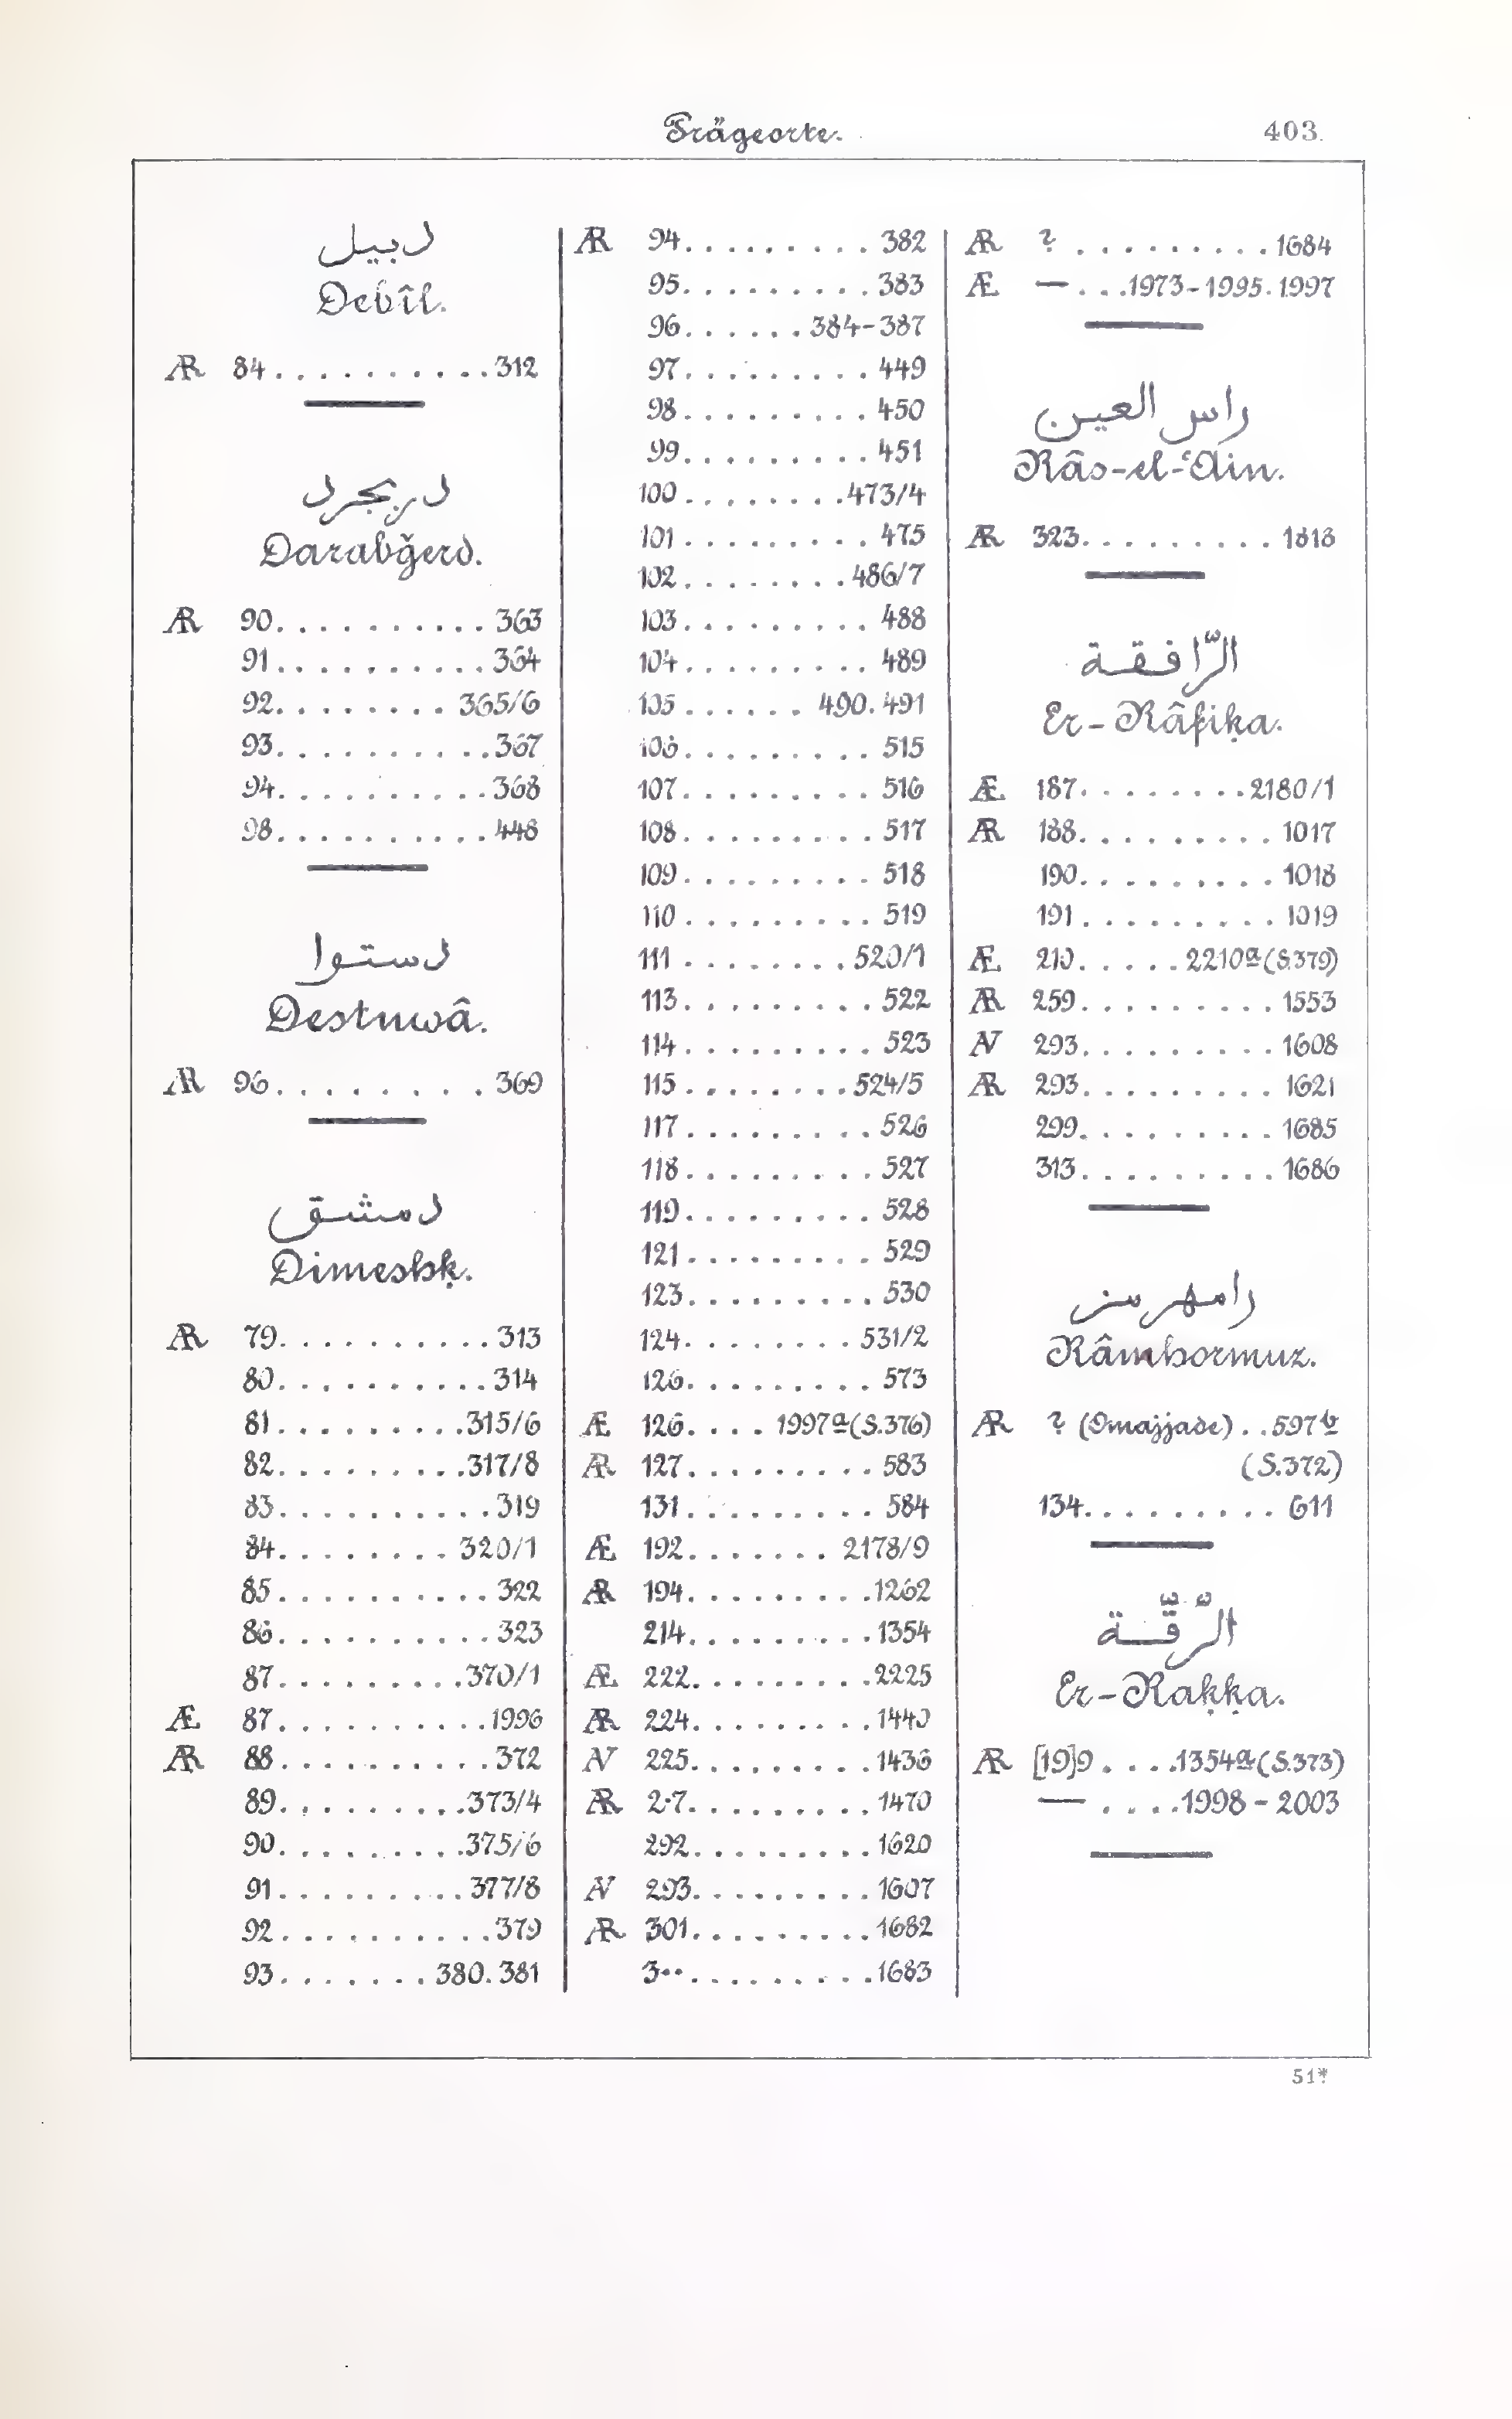 Prägeorte.
403.
دبيل
Debîl.
ÆR 84..........312
دربجرد
Darabǧerd.
ÆR 90..........363
91..........364
92........365/6
93..........367
94..........368
98..........448
دستوا
Destuwâ.
ÆR 96.........369
دمشق
Dimeshḳ.
ÆR 79..........313
80..........314
81.........315/6
82.........317/8
83..........319
84........320/1
85..........322
86..........323
87.........370/1
Æ 87..........1996
ÆR 88..........372
89.........373/4
90.........375/6
91.........377/8
92..........379
93.......380.381
ÆR 94.........382
95.........383
96......384-387
97.........449
98.........450
99.........451
100........473/4
101.........475
102........486/7
103.........488
104.........489
105......490.491
106.........515
107.........516
108.........517
109.........518
110.........519
111........520/1
113.........522
114.........523
115........524/5
117.........526
118.........527
119.........528
121.........529
123.........530
124........531/2
126.........573
Æ 126....1997a(S.376)
ÆR 127.........583
131.........584
Æ 192.......2178/9
ÆR 194.........1262
214.........1354
Æ 222.........2225
ÆR 224.........1440
AV 225.........1436
ÆR 2·7.........1470
292.........1620
AV 293.........1607
ÆR 301.........1682
3··.........1683
ÆR ?.........1684
Æ —...1973-1995.1997
راس العين
Râs-el-ʿAin.
ÆR 323.........1818
الرّافقة
Er-Râfiḳa.
Æ 187........2180/1
ÆR 188.........1017
190.........1018
191.........1019
Æ 210.....2210a(S.379)
ÆR 259.........1553
AV 293.........1608
ÆR 293.........1621
299.........1685
313.........1686
رامهرمز
Râmhormuz.
ÆR ? (Omajjade)..597b
(S.372)
134.........611
الرّقّة
Er-Raḳḳa.
ÆR [19]9....1354a(S.373)
—....1998-2003
51*